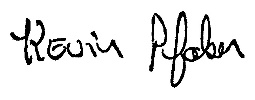 Kevin Pfaber